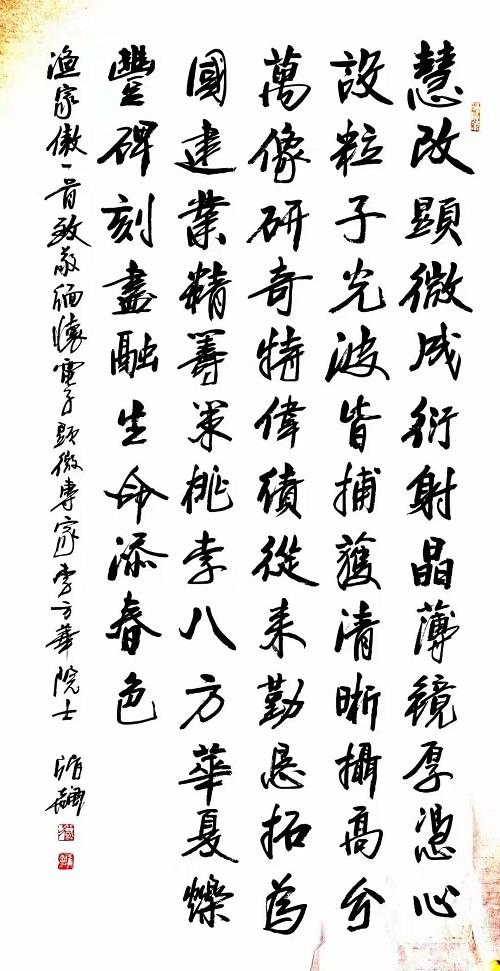 慧改顯微成衍射晶薄鏡厚憑心
設粒子光波皆捕獲清晰攝高分
萬像研奇特偉績從来勤恳拓為
國建業精籌策桃李八方華夏爍
豐碑刻盡融生命添春色
渔家傲一首致敬缅懷電子顕微專家李方華院士